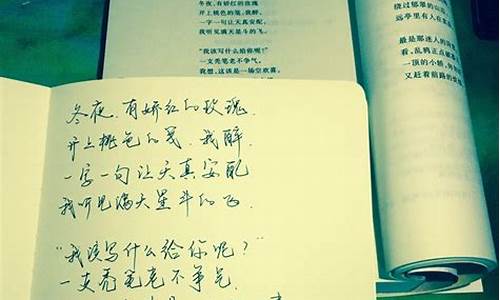 冬夜,有娇红的玫瑰
开上桃色的笺,我醉,
一字一句让天真安配,
我听见满天星斗的飞。
“我该写什么给你呢?”
一支秃笔老不争气,
我想,这该是一场空欢喜。
绕过郁翠的山
远亭里有人在
最是那迷人的
看,乱鸦正点破
一顶的小轿,
又赶着前路的
冬夜,有娇红的玫瑰.
开上桃色的笺.我醉.
一字一句让天真安配
我听见满天星斗的飞.
“我该写什么给你呢?”
一支秃笔老不争气.